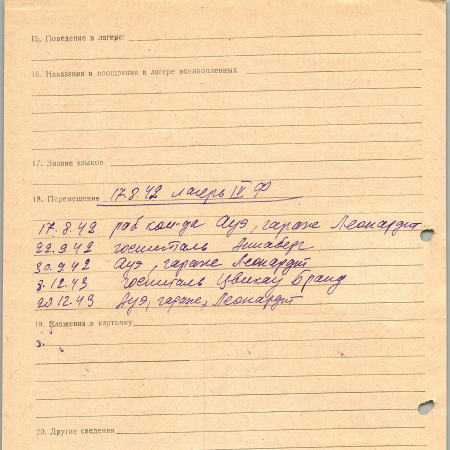 15. Поведение в лагере:
16. Наказания и поощрения в лагере военнопленных
17. Знание языков
18. Перемещения 17.8.42 лагерь IV Ф
17.8.42 раб ком-да Ауэ, гараже Леонардт
22.9.42 госпиталь Аннаберг
30.9.42 Ауэ, гараже Леонардт
8.12.43 госпиталь Цвикау Бранд
20.12.43 Ауэ, гараже, Леонардт
19. Вложения в карточку
20. Другие сведения